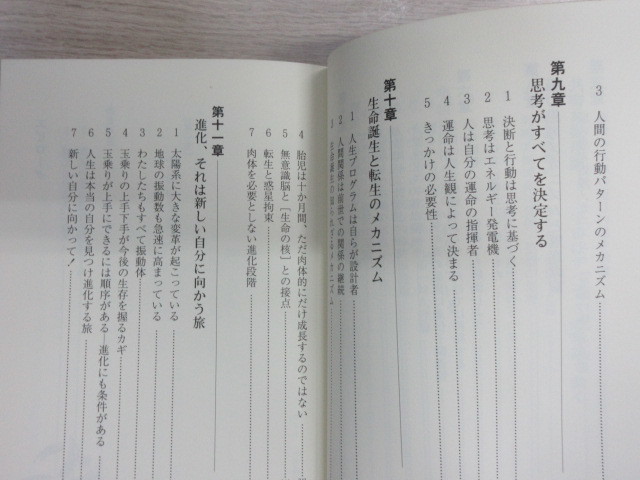 3 人間の行動パターンのメカニズム
第九章
思考がすべてを決定する
1 決断と行動は思考に基づく
2 思考はエネルギー発電機
3 人は自分の運命の指揮者
4 運命は人生観によって決まる
5 きっかけの必要性
第十章
生命誕生と転生のメカニズム
1 人生プログラムは自らが設計者
2 人間関係は前世での関係の継続
3 生命誕生の知られざるメカニズム
4 胎児は十か月間、ただ肉体的にだけ成長するのではない
5 無意識脳と［生命の核］との接点
6 転生と惑星拘束
7 肉体を必要としない進化段階
第十一章
進化、それは新しい自分に向かう旅
1 太陽系に大きな変革が起こっている
2 地球の振動数も急速に高まっている
3 わたしたちもすべて振動体
4 玉乗りの上手下手が今後の生存を握るカギ
5 玉乗りが上手にできるには順序がある―進化にも条件がある
6 人生は本当の自分を見つけ進化する旅
7 新しい自分に向かって！